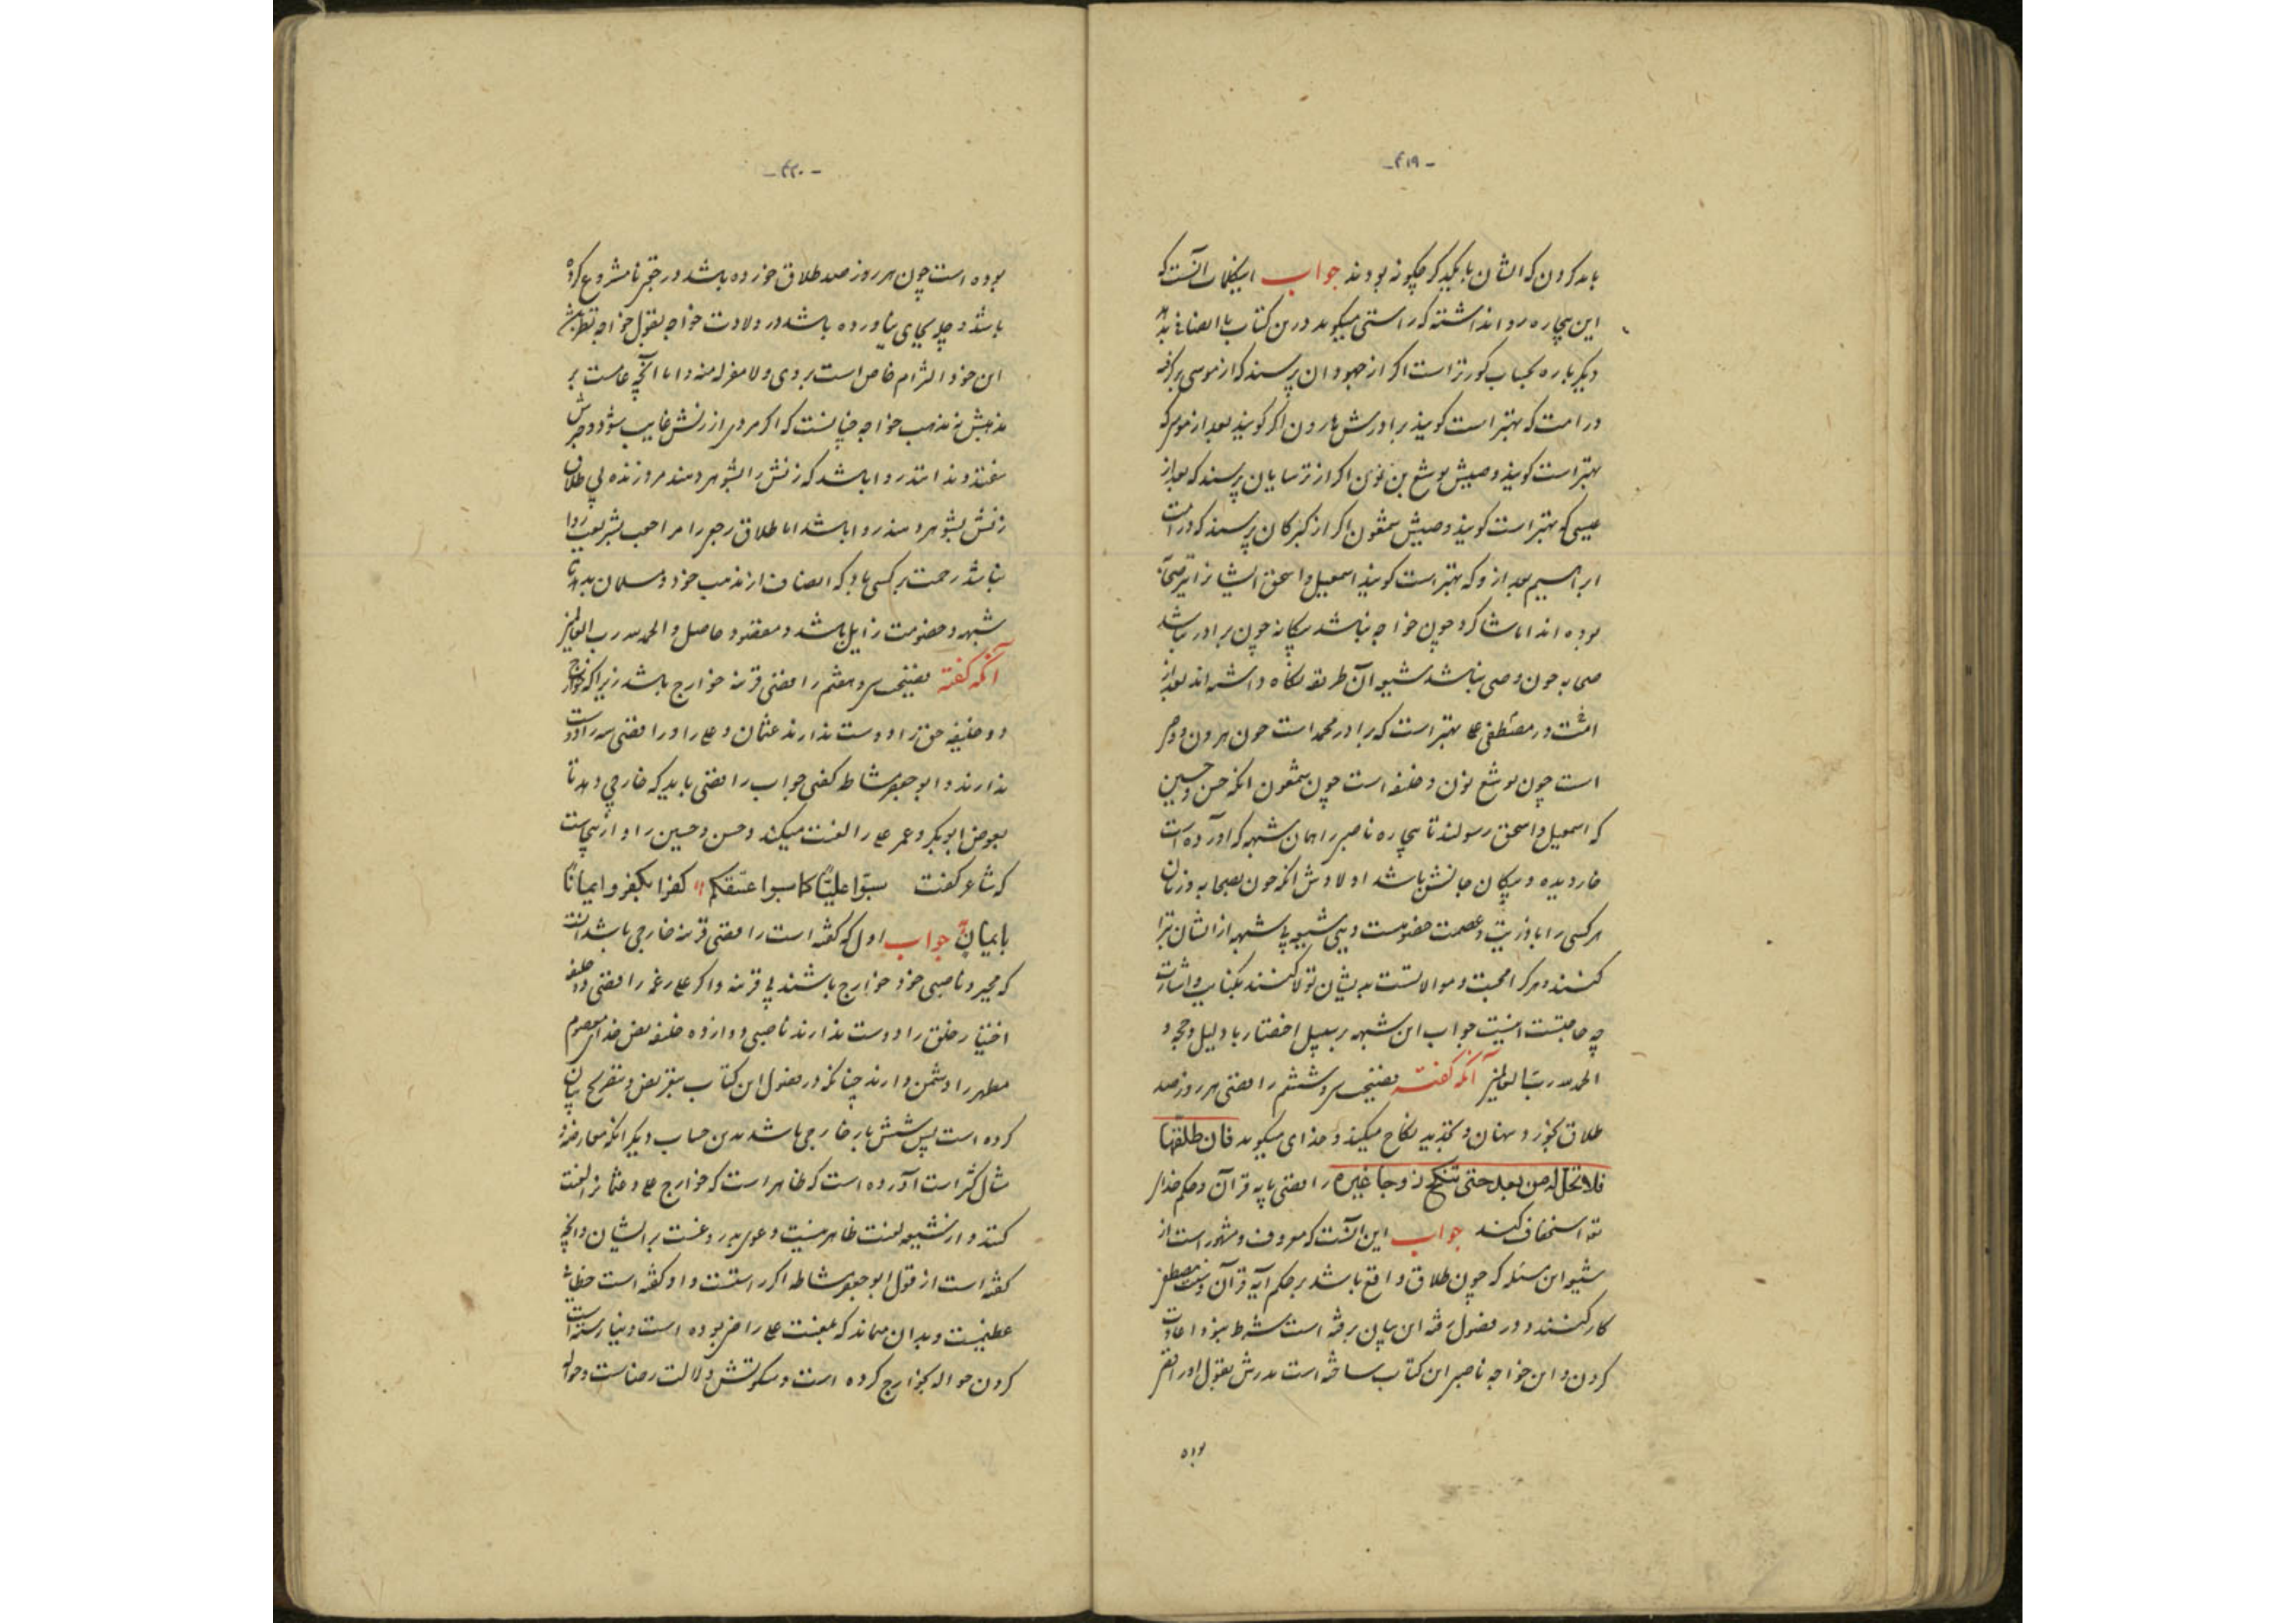 - ۴۱۹ -
یاد کردن که ایشان با یکدیگر چگونه بودند جواب این کلمات آنست که
این بیچاره روا نداشته که راستی میگوید درین کتاب یا انصافی بدهد
دیگر باره بحساب کورتر است اگر از جهودان پرسند که از موسی برگذشته
در امت که بهتر است گویند برادرش هارون اگر گویند بعد از موسی که
بهتر است گویند وصیش یوشع بن نون اگر از ترسایان پرسند که بعد از
عیسی که بهتر است گویند وصیش شمعون اگر از گبرکان پرسند که در امت
ابراهیم بعد از و که بهتر است گویند اسمعیل و اسحق ایشان را نیز صحابه
بوده اند اما شاگرد چون خواجه نباشد بیگانه چون برادر نباشد
صحابه چون وصی نباشد شیعه آن طریقه نگاه داشته اند بعد از
مصطفی علی بهتر است که برادر محمد است چون هرون و وصی
است چون یوشع نون و خلیفه است چون شمعون آنگه حسن و حسین
که اسمعیل و اسحق رسولند تا بیچاره ناصبی را همان شبهه که آورده است
خار دیده و پیکان جانش باشد اولادش آنگه چون بصحابه و زنان
هر کسی را با وزیت و عصمت خصومت و بی شبهه از ایشان تبرا
کنند و هر کرا محبت و موالاتست بدیشان تولا کنند بکنایت و اشارت
چه حاجتست اینست جواب این شبهه بر سبیل اختصار با دلیل و حجه و
الحمد لله رب العالمین آنکه گفته فضیحت سی و ششم رافضی هر روز صد
طلاق بخورد و تجدید نکاح میکند و خدای میگوید فان طلقها
فلا تحل له من بعد حتی تنکح زوجا غیره رافضی بآیه قرآن و حکم خدای
استخفاف کند جواب این آنست که معروف و مشهور است از
شیعه این مسئله که چون طلاق واقع باشد بر حکم آیه قرآن و سنت مصطفی
کار کنند و در فصول رفته این بیان برفته است شرط نبود اعادت
کردن و این خواجه ناصبی این کتاب ساخته است پدرش بقول او رافضی
بوده
- ۴۲۰ -
بوده است چون هر روز صد طلاق خورده باشد در حقیر نامشروع کرده
باشد و بجای نیاورده باشد در ولادت خواجه بقول خواجه
این خود الزام خاص است بر وی و لا مفر له منه و اما آنچه عامست بر
مذهبش نه مذهب خواجه چنانست که اگر مردی از زنش غایب شود و خبرش
روا باشد که زنش را بشوهر دهند مرد زنده بی طلاق
زنش بشوهر دهند روا باشد اما طلاق رجعی را مراجعت بشریعت روا
نباشد رحمت بر کسی باد که انصاف از مذهب خود و مسلمان بدهد تا
شبهه و خصومت زایل باشد و مقصود حاصل والحمد لله رب العالمین
آنکه گفته فضیحت سی و هفتم رافضی قرینه خوارج باشد زیرا که خوارج
دو خلیفه حق را دوست ندارند عثمان و علی را و رافضی سه را دوست
ندارند و ابو جعفر مشاط گفتی جواب رافضی باید که خارجی دهد تا
بعوض ابوبکر و عمر علی را لعنت میکند و حسن و حسین را و از اینجاست
که شاعر گفت سبّوا علیّاً کما سبوا عتیقکم کفرا بکفر و ایمانًا
بایمان جواب اول که گفته است رافضی قرینه خارجی باشد
که مجبر و ناصبی خود خوارج باشند بی قرینه و اگر علی رغم رافضی دو خلیفه
اختیار خلق را دوست ندارند ناصبی دوازده خلیفه نص خدای معصوم
مطهر را دشمن دارند چنانکه در فصول این کتاب بتعریض و تصریح بیان
کرده است پس شش بار خارجی باشد بدین حساب دیگر آنکه معارضه و
مثال کژ است آورده است که ظاهر است که خوارج علی و عثمان را لعنت
کنند و از شیعه لعنت ظاهر نیست و دعوی بدروغست بر ایشان و آنچه
گفته است از قول ابو جعفر مشاط اگر راستست و او گفته است خطائی
عظیمست و بدان میماند که بلعنت علی راضی بوده است و نیارسته است
کردن حواله بخوارج کرده است و سکوتش دلالت رضاست و حواله